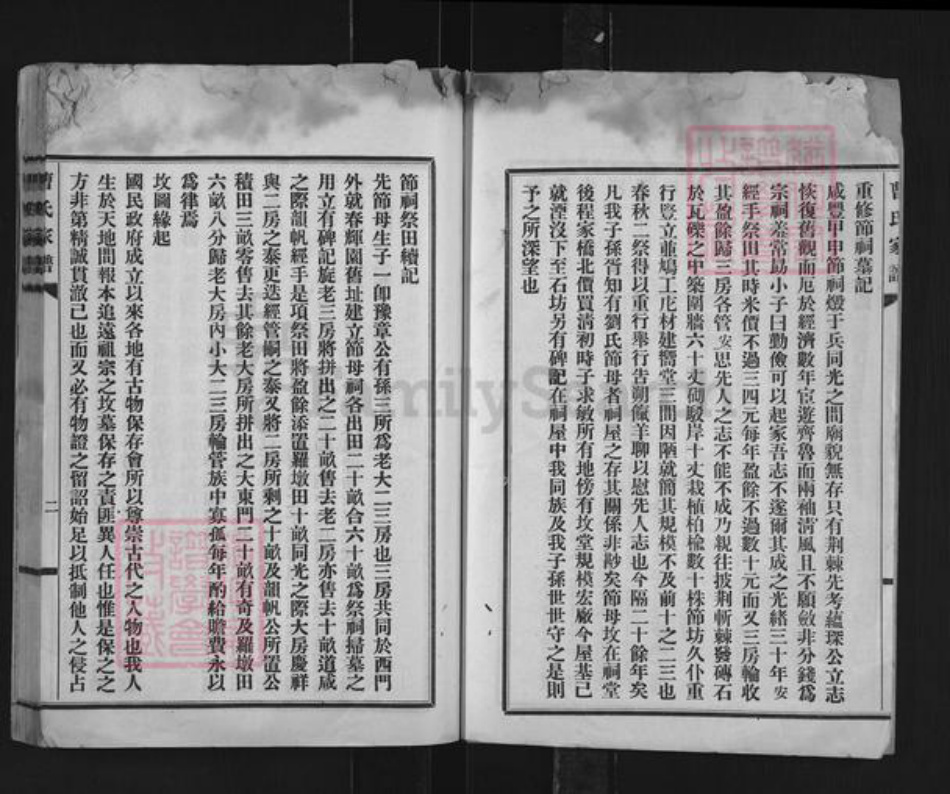 曹氏家譜
重修節祠墓記
咸豐甲申節祠燬于兵同光之間廟貌無存只有荆棘先考蘊琛公立志
恢復舊觀而厄於經濟數年宦遊齊魯而兩袖清風且不願斂非分錢爲
宗祠羞常勗小子曰勤儉可以起家吾志不遂爾其成之光緒三十年安
經手祭田其時米價不過三四元每年盈餘不過數十元而又三房輪收
其盈餘歸三房各管安思先人之志不能不成乃親往披荆斬棘發磚石
於瓦礫之中築圍牆六十丈砌駁岸十丈栽植柏楡數十株節坊久仆重
行豎立並鳩工庀材建嚮堂三間因陋就簡其規模不及前十之二三也
春秋二祭得以重行舉行告朔餼羊聊以慰先人志也今隔二十餘年矣
凡我子孫胥知有劉氏節母者祠屋之存其關係非尠矣節母坟在祠堂
後程家橋北價買湋初時子求敏所有地傍有坟堂規模宏敞今屋基已
就湮沒下至石坊另有碑記在祠屋中我同族及我子孫世世守之是則
予之所深望也
節祠祭田續記
先節母生子一卽豫章公有孫三所爲老大二三房也三房共同於西門
外就春輝園舊址建立節母祠各出田二十畝合六十畝爲祭祠掃墓之
用立有碑記旋老三房將拼出之二十畝售去老二房亦售去十畝道咸
之際韻帆經手是項祭田將盈餘添置羅墩田十畝同光之際大房慶祥
與二房之泰更迭經管嗣之泰又將二房所剩之十畝及韻帆公所置公
積田三畝零售去其餘老大房所拼出之大東門二十畝有奇及羅墩田
六畝八分歸老大房內小大二三房輪管族中寡孤每年酌給贍費永以
爲律焉
坟圖緣起
國民政府成立以來各地有古物保存會所以尊崇古代之人物也我人
生於天地間報本追遠祖宗之坟墓保存之責匪異人任也惟是保之之
方非第精誠貫澈已也而又必有物證之留詔始足以抵制他人之侵占
曹氏家譜
二
FamilySearch